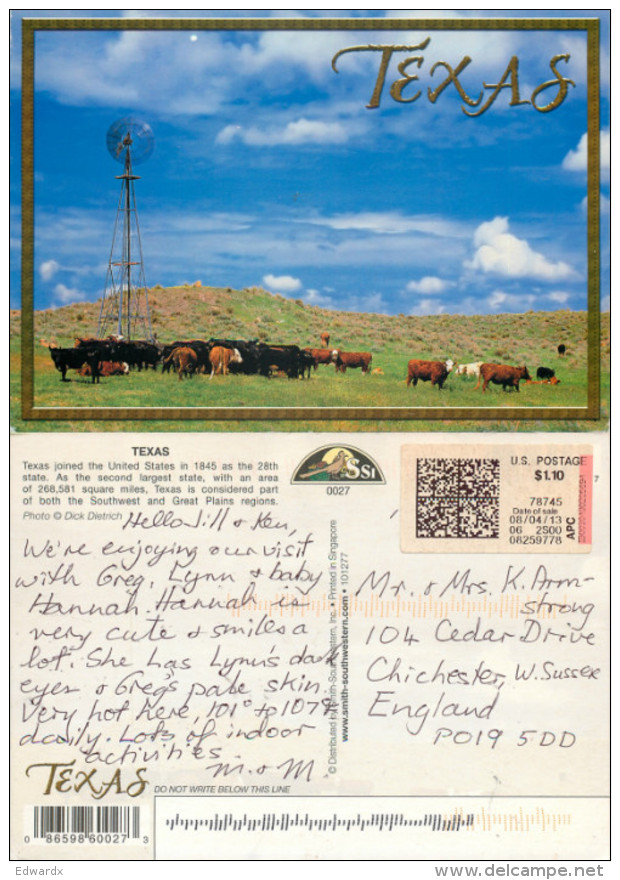 TEXAS
TEXAS
Texas joined the United States in 1845 as the 28th
state. As the second largest state, with an area
of 268,581 square miles, Texas is considered part
of both the Southwest and Great Plains regions.
Photo © Dick Dietrich
SSI
0027
U.S. POSTAGE
$1.10
78745
Date of sale
08/04/13
06 2S00
08259778
APC
7
Hello Jill & Ken,
We're enjoying our visit
with Greg, Lynn & baby
Hannah. Hannah is
very cute & smiles a
lot. She has Lynn's dark
eyes & Greg's pale skin.
Very hot here, 101° to 107°
daily. Lots of indoor
activities.
M. & M.
© Distributed by Smith-Southwestern, Inc. • Printed in Singapore
www.smith-southwestern.com • 101277
Mr. & Mrs. K. Arm-
strong
104 Cedar Drive
Chichester, W. Sussex
England
PO19 5DD
TEXAS
DO NOT WRITE BELOW THIS LINE
0 86598 60027 3
Edwardx
www.delcampe.net